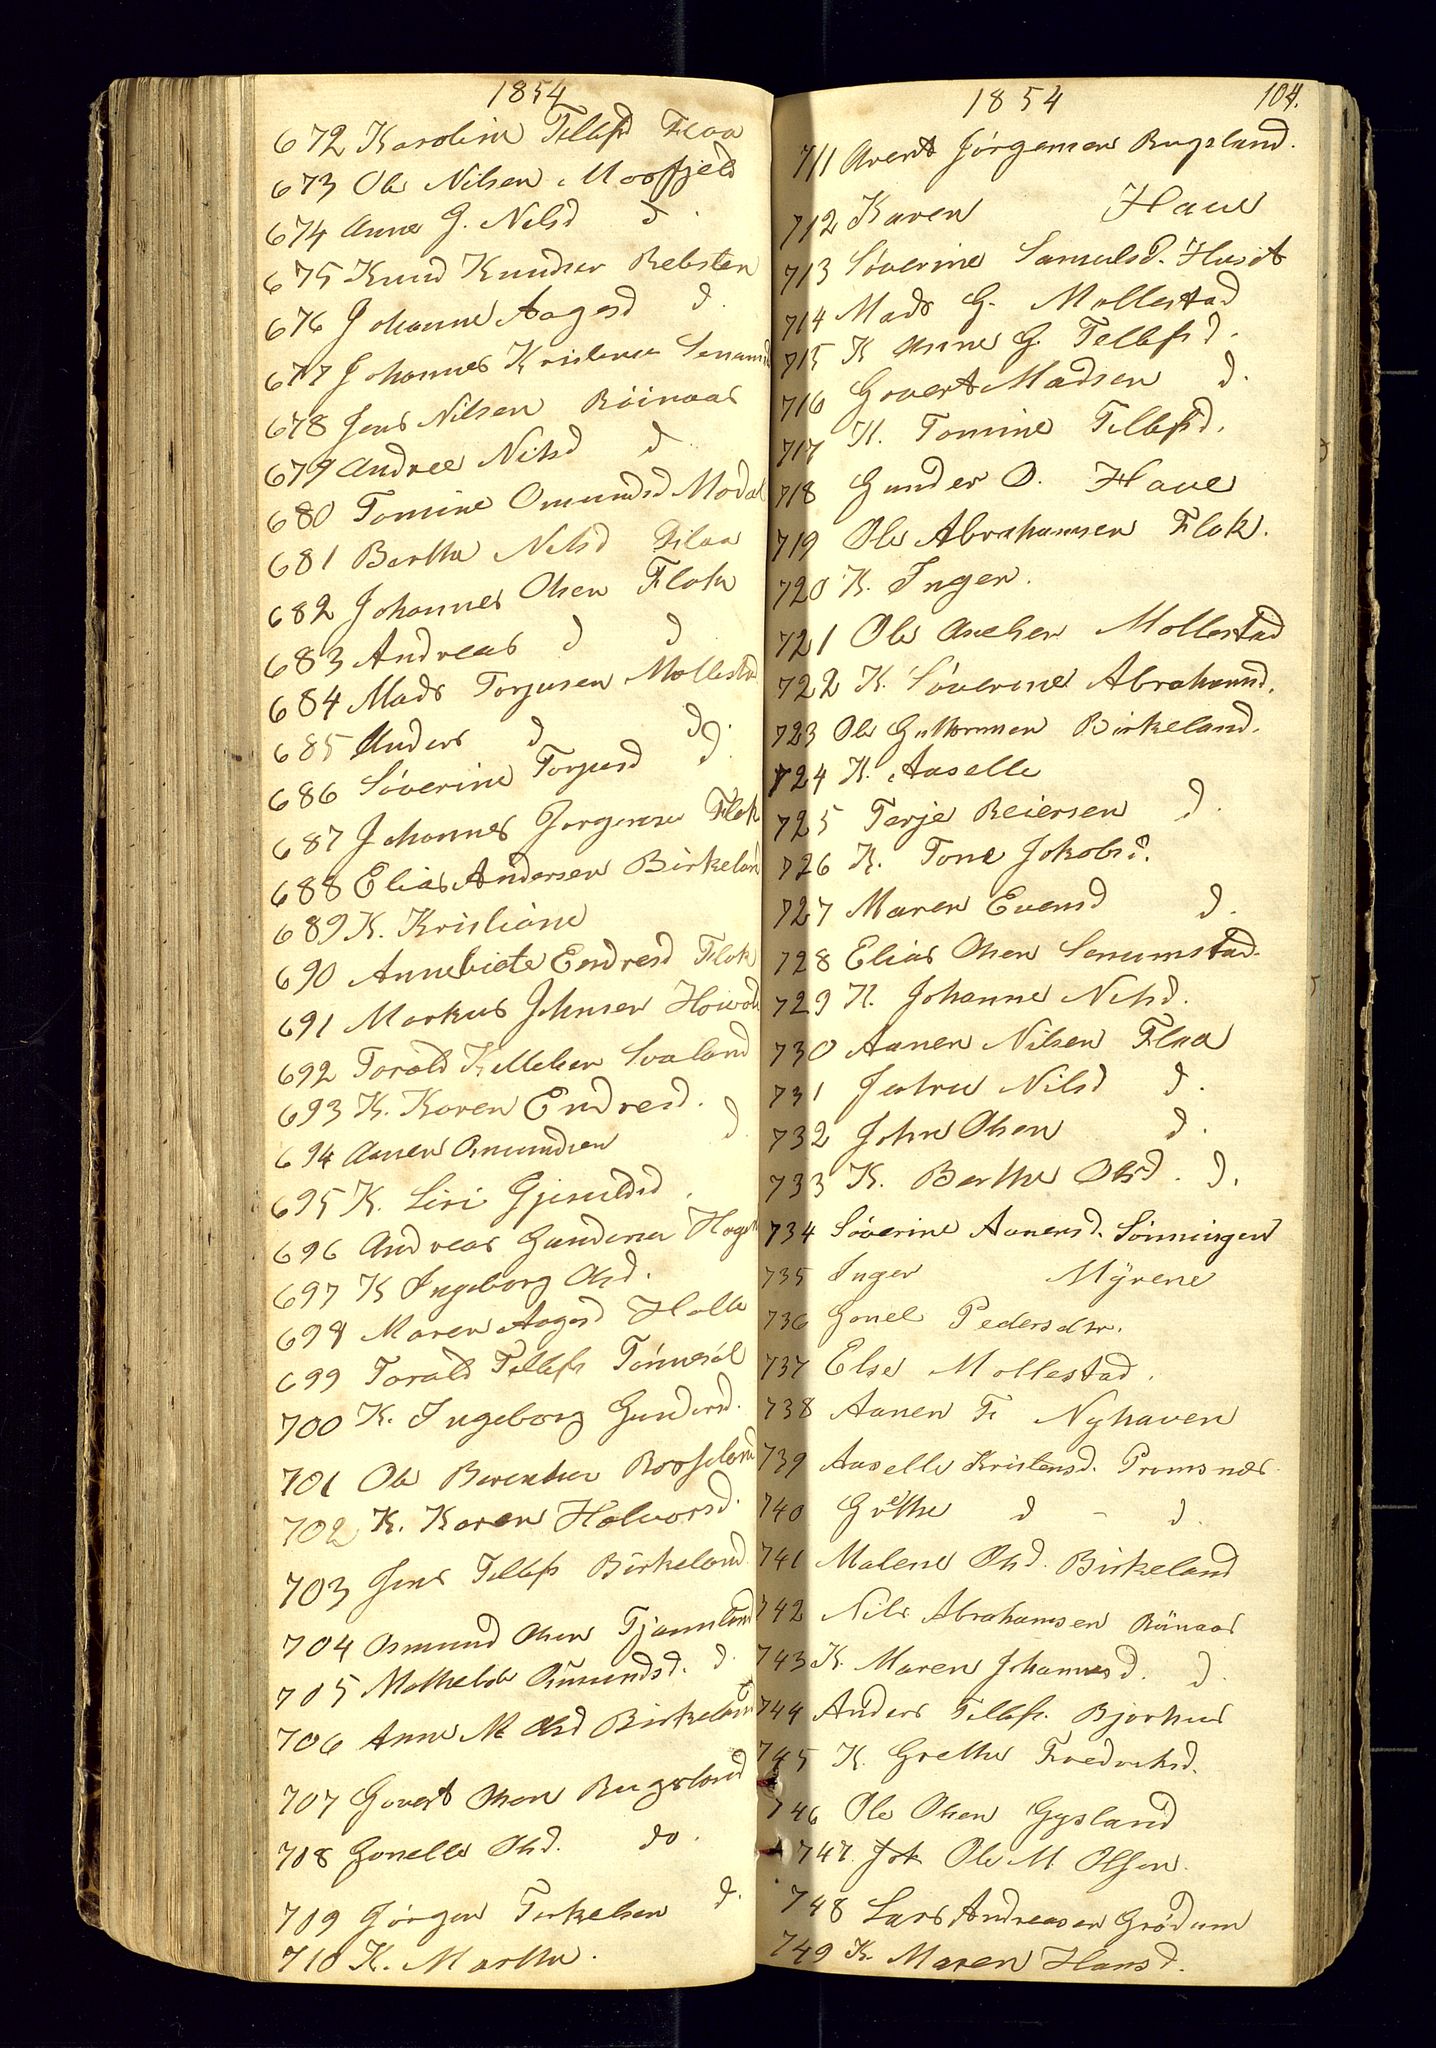 1854
672 Karoline Tellefsd Flaa
673 Ole Nilsen Mosfjeld
674 Anne G. Nilsd d.
675 Knud Knudsen Rebsten
676 Johanne Aagesd d.
677 Johannes Kristensen Senumst
678 Jens Nilsen Röinaas
679 Andrea Nilsd d
680 Tomine Omundsd Modal
681 Berthe Nilsd
682 Johannes Olsen Flak
683 Andreas d d
684 Mads Torjusen Mollestad
685 Anders d d.
686 Söverine Torjusd d.
687 Johannes Jorgensen Flak
688 Elias Andersen Birkeland
689 K. Kristiane
690 Annebiete Endresd Flak
691 Markus Johnsen
692 Torald Kittelsen Svaland
693 K. Karen Endresd.
694 Aanen Omundsen d
695 K. Siri Gjeruldsd.
696 Andreas Gundersen
697 K Ingeborg Olsd.
698 Maren Aagesd Holle
699 Torald Tellefs Tönnesöl
700 K. Ingeborg Gundersd.
701 Ole Berentsen Rosseland
702 K. Karen Halvorsd.
703 Jens Tellefs Birkeland
704 Osmund Olsen Tjamsland
705 Mathilde Osmundsd. d.
706 Anne M. Olsd Birkeland
707 Govert Olsen Rugsland
708 Gonelle Olsd. do.
709 Jörgen Terkelsen d.
710 K. Marthe.
1854 104.
711 Arent Jörgensen Rugsland.
712 Karen Haue
713 Söverine Samuelsd.
714 Mads G. Mollestad
715 K Anne G. Tellefsd.
716 Govert Madsen d.
717 K. Tomine Tellefsd.
718 Gunder O. Haue
719 Ole Abrahamsen Flak.
720 K. Inger.
721 Ole Axelsen Mollestad
722 K. Söverine Abrahamsd.
723 Ole Guttormsen Birkeland.
724 K. Aaselle
725 Terje Reiersen d.
726 K. Tone Jakobsd.
727 Maren Evensd d.
728 Elias Olsen Senumstad.
729 K. Johanne Nilsd.
730 Aanen Nilsen Flaa
731 Jertru Nilsd d.
732 John Olsen d.
733 K. Berthe Olsd. d.
734 Söverine Aanensd. Sönningen
735 Inger Myrene
736 Gonel Pedersdtr.
737 Else Mollestad.
738 Aanen F. Nyhaven
739 Aaselle Kristensd. Promsnes.
740 Grethe d - d.
741 Malene Olsd. Birkeland
742 Nils Abrahamsen Rönaas
743 K. Maren Johannesd. d.
744 Anders Tellefs. Bjorhus
745 K. Grethe Fredriksd.
746 Ole Olsen Gysland
747. Joh Ole M. Olsen.
748 Lars Andreasen Grödum
749 K. Maren Hansd.